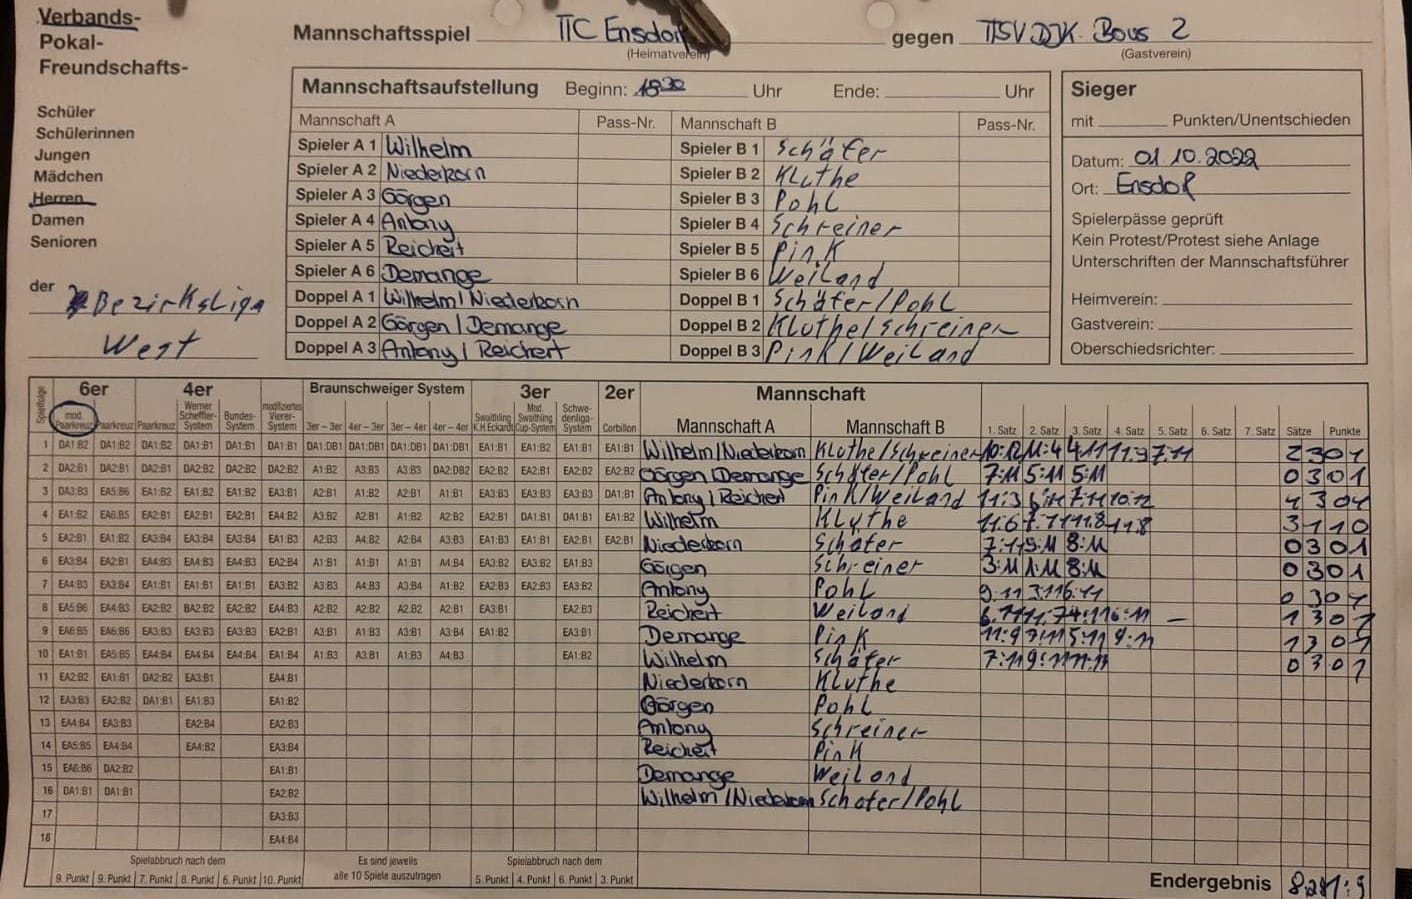 Verbands-
Pokal-
Freundschafts-
Schüler
Schülerinnen
Jungen
Mädchen
Herren
Damen
Senioren
der Bezirksliga
West
Mannschaftsspiel TTC Ensdorf gegen TTSV DJK Bous 2
(Heimatverein) (Gastverein)
Mannschaftsaufstellung Beginn: 18 30 Uhr Ende: Uhr
Mannschaft A Pass-Nr. Mannschaft B Pass-Nr.
Spieler A 1 Wilhelm Spieler B 1 Schäfer
Spieler A 2 Niederkorn Spieler B 2 Kluthe
Spieler A 3 Görgen Spieler B 3 Pohl
Spieler A 4 Antony Spieler B 4 Schreiner
Spieler A 5 Reichert Spieler B 5 Pink
Spieler A 6 Demange Spieler B 6 Weiland
Doppel A 1 Wilhelm/Niederkorn Doppel B 1 Schäfer/Pohl
Doppel A 2 Görgen/Demange Doppel B 2 Kluthe/Schreiner
Doppel A 3 Antony/Reichert Doppel B 3 Pink/Weiland
Sieger
mit Punkten/Unentschieden
Datum: 01.10.2022
Ort: Ensdorf
Spielerpässe geprüft
Kein Protest/Protest siehe Anlage
Unterschriften der Mannschaftsführer
Heimverein:
Gastverein:
Oberschiedsrichter:
Spielfolge 6er 4er Braunschweiger System 3er 2er Mannschaft
mod. Paarkreuz Paarkreuz Paarkreuz Werner Scheffler-System Bundes-System modifiziertes Vierer-System 3er – 3er 4er – 3er 3er – 4er 4er – 4er Swaithling K.H.Eckardt Mod. Swaithling Cup-System Schwedenliga-System Corbillon Mannschaft A Mannschaft B 1. Satz 2. Satz 3. Satz 4. Satz 5. Satz 6. Satz 7. Satz Sätze Punkte
1 DA1:B2 DA1:B2 DA1:B2 DA1:B1 DA1:B1 DA1:B1 DA1:DB1 DA1:DB1 DA1:DB1 DA1:DB1 EA1:B1 EA1:B2 EA1:B1 EA1:B1 Wilhelm/Niederkorn Kluthe/Schreiner 2 3 0 1
2 DA2:B1 DA2:B1 DA2:B1 DA2:B2 DA2:B2 DA2:B2 A1:B2 A3:B3 A3:B3 DA2:DB2 EA2:B2 EA2:B1 EA2:B2 EA2:B2 Görgen/Demange Schäfer/Pohl 7:11 5:11 5:11 0 3 0 1
3 DA3:B3 EA5:B6 EA1:B2 EA1:B2 EA1:B2 EA3:B1 A2:B1 A1:B2 A2:B1 A1:B1 EA3:B3 EA3:B3 EA3:B3 DA1:B1 Antony/Reichert Pink/Weiland 11:3 7:11 10:12 1 3 0 1
4 EA1:B2 EA6:B5 EA2:B1 EA2:B1 EA2:B1 EA4:B2 A3:B2 A2:B1 A1:B2 A2:B2 EA2:B1 DA1:B1 DA1:B1 EA1:B2 Wilhelm Kluthe 11:6 7:11 11:8 11:8 3 1 1 0
5 EA2:B1 EA1:B2 EA3:B4 EA3:B4 EA3:B4 EA1:B3 A2:B3 A4:B2 A2:B4 A3:B3 EA1:B3 EA1:B1 EA2:B1 EA2:B1 Niederkorn Schäfer 7:11 5:11 8:11 0 3 0 1
6 EA3:B4 EA2:B1 EA4:B3 EA4:B3 EA4:B3 EA2:B4 A1:B1 A1:B1 A1:B1 A4:B4 EA3:B2 EA3:B2 EA1:B3 Görgen Schreiner 3:11 1:11 8:11 0 3 0 1
7 EA4:B3 EA3:B4 EA1:B1 EA1:B1 EA1:B1 EA3:B2 A3:B3 A4:B3 A3:B4 A1:B2 EA2:B3 EA2:B3 EA3:B2 Antony Pohl 9:11 3:11 6:11 0 3 0 1
8 EA5:B6 EA4:B3 EA2:B2 BA2:B2 EA2:B2 EA4:B3 A2:B2 A2:B2 A2:B2 A2:B1 EA3:B1 EA2:B3 Reichert Weiland 1 3 0 1
9 EA6:B5 EA6:B6 EA3:B3 EA3:B3 EA3:B3 EA2:B1 A3:B1 A1:B3 A3:B1 A3:B4 EA1:B2 EA3:B1 Demange Pink 11:9 7:11 5:11 9:11 1 3 0 1
10 EA1:B1 EA5:B5 EA4:B4 EA4:B4 EA4:B4 EA1:B4 A1:B3 A3:B1 A1:B3 A4:B3 EA1:B2 Wilhelm Schäfer 7:11 9:11 0 3 0 1
11 EA2:B2 EA1:B1 DA2:B2 EA3:B1 EA4:B1 Niederkorn Kluthe
12 EA3:B3 EA2:B2 DA1:B1 EA1:B3 EA1:B2 Görgen Pohl
13 EA4:B4 EA3:B3 EA2:B4 EA2:B3 Antony Schreiner
14 EA5:B5 EA4:B4 EA4:B2 EA3:B4 Reichert Pink
15 EA6:B6 DA2:B2 EA1:B1 Demange Weiland
16 DA1:B1 DA1:B1 EA2:B2 Wilhelm/Niederkorn Schäfer/Pohl
17 EA3:B3
18 EA4:B4
Spielabbruch nach dem Es sind jeweils Spielabbruch nach dem
9. Punkt 9. Punkt 7. Punkt 8. Punkt 6. Punkt 10. Punkt alle 10 Spiele auszutragen 5. Punkt 4. Punkt 6. Punkt 3. Punkt
Endergebnis 1:9